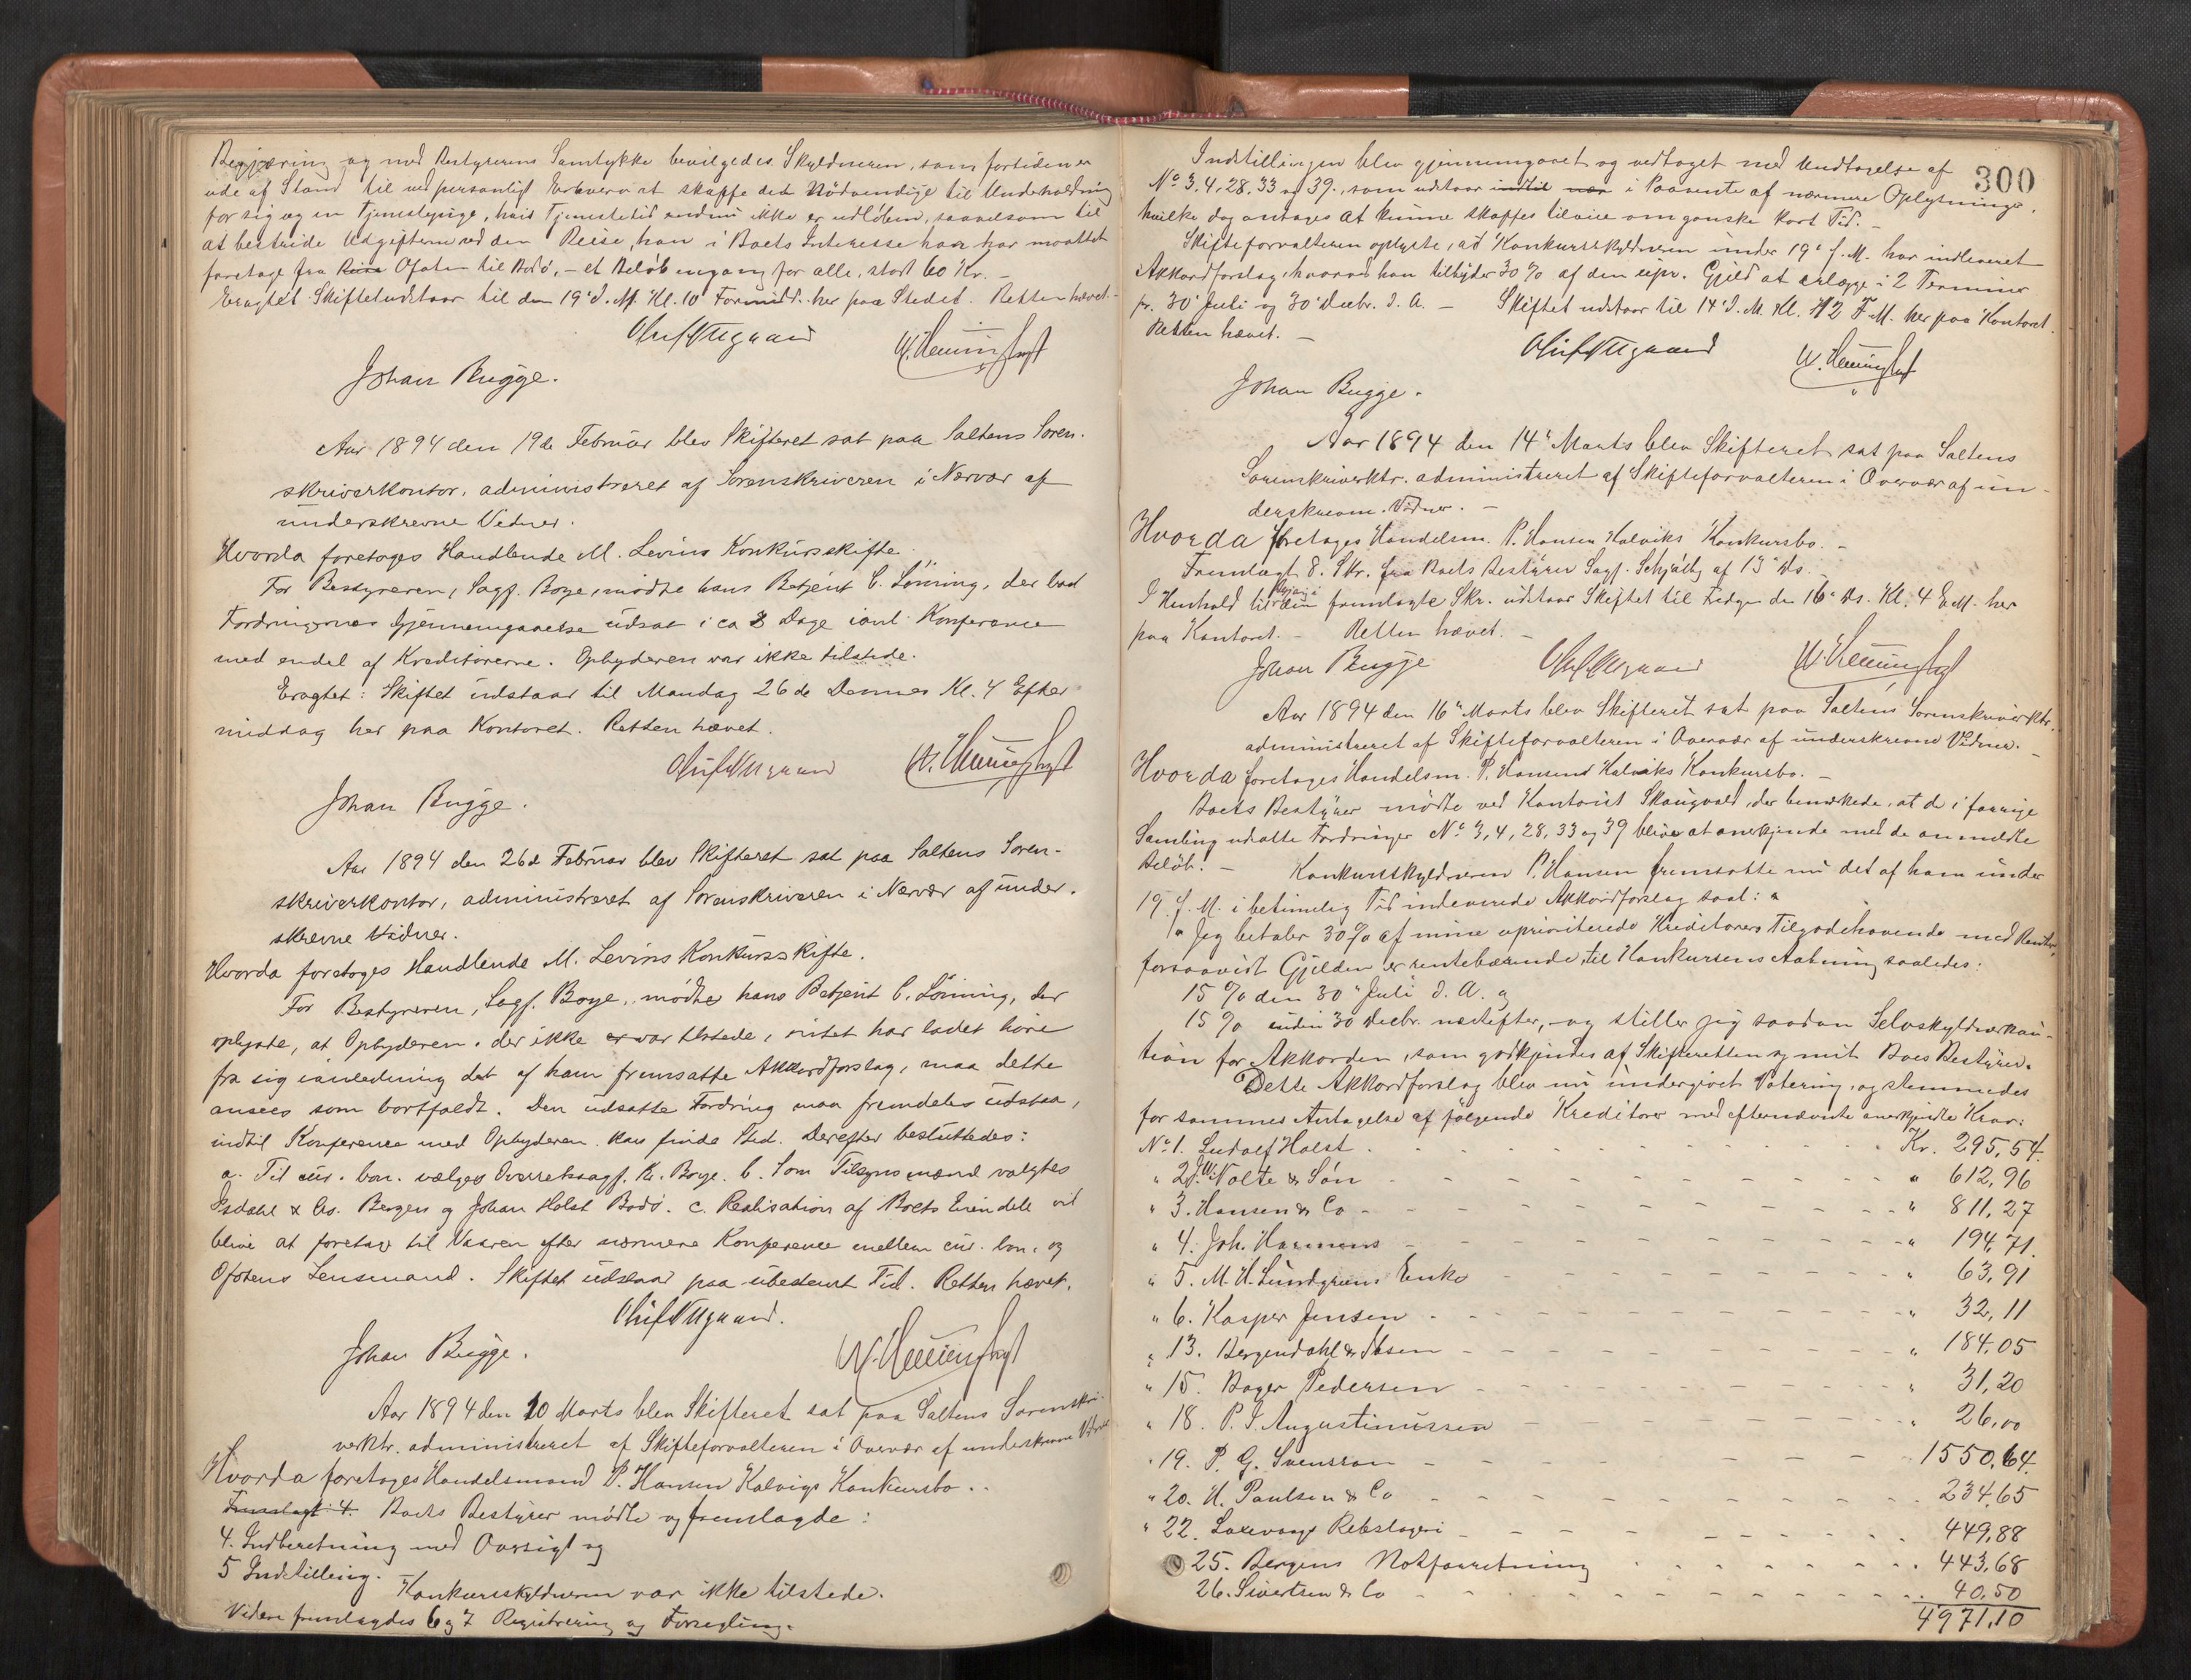 Begjæring og med Bestyrerens Samtykke bevilgedes Skyldneren, som fortiden er
ude af Stand til ved personligt Erhverv at skaffe det Nödvendige til Underholdning
for sig og en Tjenestepige, hvis Tjenestetid endnu ikke er udlöben, saavelsom til
at bestride Udgifterne ved den Reise, han i Boets Interesse har maattet
foretage fra Ofoten til Bodö, – et Belöb engang for alle, stort 60 Kr. –
Eragtet: Skiftet udstaar til den 19' d. M. Kl. 10 Formidd. her paa Stedet. Retten hævet.
Johan Bugge.
Aar 1894 den 19de Februar blev Skifteret sat paa Saltens Soren-
skriverkontor, administreret af Sorenskriveren i Nærvær af
underskrevne Vidner.
Hvorda foretoges Handlende M. Levins Konkursskifte.
For Bestyreren, Sagf. Boye, mödte hans Betjent C. Lönning, der bad
Fordringernes Gjennemgaaelse udsat i ca 8 Dage ianl. Konferance
med endel af Kreditorerne. Opbyderen var ikke tilstede.
Eragtet: Skiftet udstaar til Mandag 26de Dennes Kl. 4 Efter
middag her paa Kontoret. Retten hævet.
Johan Bugge.
Aar 1894 den 26de Februar blev Skifteret sat paa Saltens Soren-
skriverkontor, administreret af Sorenskriveren i Nærvær af under-
skrevne Vidner.
Hvorda foretoges Handlende M. Levins Konkursskifte.
For Bestyreren, Sagf. Boye, mödte hans Betjent C. Lönning, der
oplyste, at Opbyderen, der ikke er var tilstede, intet har ladet höre
fra sig ianledning det af ham fremsatte Akkordforslag, maa dette
ansees som bortfaldt. Den udsatte Fordring maa fremdeles udstaa,
indtil Konferance med Opbyderen kan finde Sted. Derefter besluttedes:
a. Til cur. bon. vælges Overretssagf. Kr. Boye. b. Som Tilsynsmænd valgtes
Isdahl & Co. Bergen og Johan Holst Bodö. c. Realisation af Boets Eiendele vil
blive at foretage til Vaaren efter nærmere Konferance mellem cur. bon. og
Ofotens Lensmand. Skiftet udstaar paa ubestemt Tid. Retten hævet.
Johan Bugge.
Aar 1894 den 10 Marts blev Skifteret sat paa Saltens Sorenskri-
verktr. administreret af Skifteforvalteren i Overvær af underskrevne Vidner
Hvorda foretoges Handelsmand P. Hansen Kalvigs Konkursbo..
Fremlagt: 4. Boets Bestyrer mödte og fremlagde:
4. Indberetning med Oversigt og
5 Indstilling.
Konkursskyldneren var ikke tilstede.
Videre fremlagdes 6 og 7 Registrering og Forsegling.
300
Indstillingen blev gjennemgaaet og vedtaget med Undtagelse af
No 3, 4, 28, 33 og 39, som udstaar indtil i Paavente af nærmere Oplysninger,
hvilke dog antages at kunne skaffes tilveie om ganske kort Tid. –
Skifteforvalteren oplyste, at Konkursskyldneren under 19' f. M. har indleveret
Akkordforslag, hvorved han tilbyder 30% af den upr. Gjeld at erlægge i 2 Terminer
pr. 30' Juli og 30' Decbr. d. A. – Skiftet udstaar til 14' d. M. Kl. 12 F.M. her paa Kontoret.
Retten hævet. –
Johan Bugge.
Aar 1894 den 14' Marts blev Skifteret sat paa Saltens
Sorenskriverktr. administreret af Skifteforvalteren i Overvær af un-
derskrevne Vidner. –
Hvorda foretoges Handelsm. P. Hansen Kalviks Konkursbo. –
Fremlagt 8. Skr. fra Boets Bestyrer Sagf. Schjölby af 13' ds.
I Henhold til den fremlagte Skr. udstaar Skiftet til Fredag den 16' ds. Kl. 4 E.M. her
paa Kontoret. – Retten hævet. –
Johan Bugge
Aar 1894 den 16' Marts blev Skifteret sat paa Saltens Sorenskriverktr.
administreret af Skifteforvalteren i Overvær af underskrevne Vidner. –
Hvorda foretoges Handelsm. P. Hansens Kalviks Konkursbo. –
Boets Bestyrer mödte ved Kontorist Skaugvold, der bemærkede, at de i forrige
Samling udsatte Fordringer No 3, 4, 28, 33 og 39 bliver at anerkjende med de anmeldte
Belöb. – Konkursskyldneren P. Hansen fremsatte nu det af ham under
19 f. M. i betimelig Tid indleverede Akkordforslag saal:
"Jeg betaler 30% af mine uprioriterede Kreditorers Tilgodehavende med Renter,
forsaavidt Gjelden er rentebærende, til Konkursens Aabning saaledes:
15% den 30' Juli d. A. og
15% inden 30 Decbr. næstefter, – og stiller jeg saadan Selvskyldnerkau-
tion for Akkorden, som godkjendes af Skifteretten og mit Boes Bestyrer.
Dette Akkordforslag blev nu undergivet Votering, og stemmedes
for sammes Antagelse af fölgende Kreditorer med efternævnte anerkjendte Krav:
No 1. Ludolf Holst Kr. 295,54.
" 2 J. W. Nolte & Sön " 612,96
" 3. Hansen & Co " 811,27
" 4. Joh. Harmens " 194,71.
" 5. M. H. Lundgrens Enke " 63,91
" 6. Kasper Jensen " 32,11
" 13. Bergendahl & Ibsen " 184,05
" 15. Bager Pedersen " 31,20
" 18. P. J. Augustinussen " 26,00
" 19. P. G. Svensson 1550,64.
" 20. H. Paulsen & Co 234,65
" 22. Laxevaags Rebslageri 449,88
25. Bergens Notforretning 443,68
26. Sivertsen & Co 40,50
4971,10